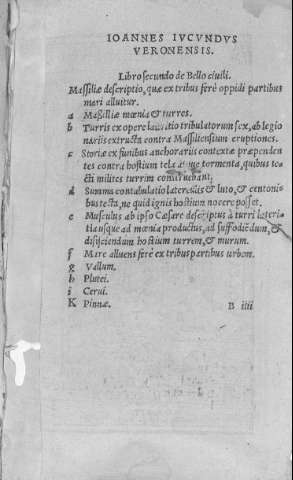 IOANNES IVCVNDVS
VERONENSIS.
Libro secundo de Bello ciuili.
Massiliæ descriptio, quæ ex tribus ferè oppidi partibus
mari alluitur.
a Massiliæ mœnia & turres.
b Turris ex opere lateritio tribulatorum sex, ab legio
nariis extructa contra Massiliensium eruptiones.
c Storiæ ex funibus anchorariis contextæ præpenden
tes contra hostium tela atque tormenta, quibus te
cti milites turrim construebant;
d Summa contabulatio laterculis & luto, & centoni
bus tecta, ne quid ignis hostium nocere posset.
e Musculus ab ipso Cæsare descriptus à turri lateri-
tia usque ad mœnia productus, ad suffodiēdum, &
disijciendam hostium turrem, & murum.
f Mare alluens ferè ex tribus partibus urbem.
g Vallum.
h Plutei.
i Cerui.
K Pinnæ.
B iiii